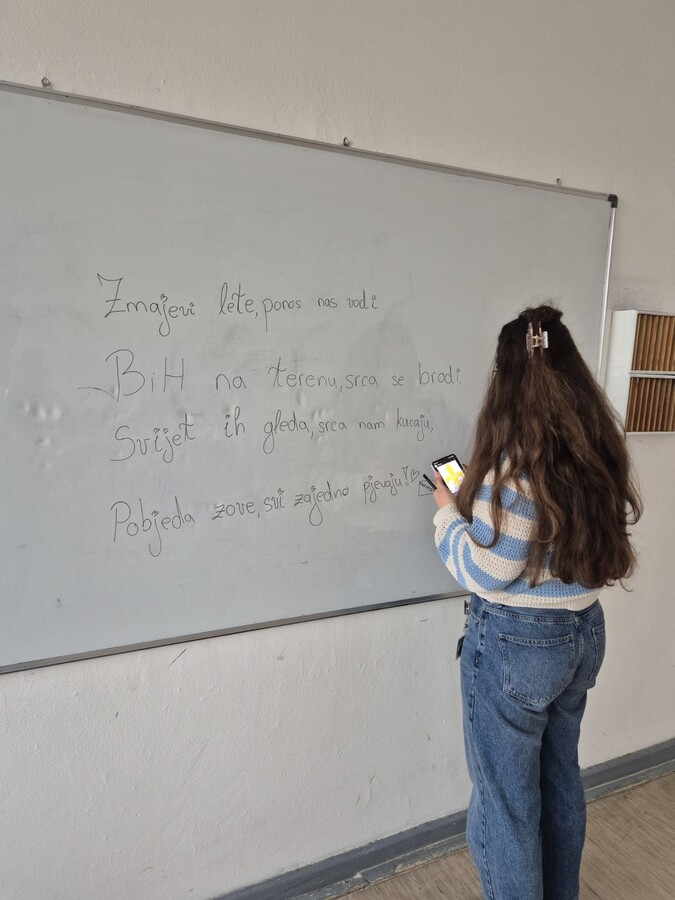 Zmajevi lete, ponos nas vodi
BiH na terenu, srca se brodi.
Svijet ih gleda, srca nam kucaju,
Pobjeda zove, svi zajedno pjevaju!